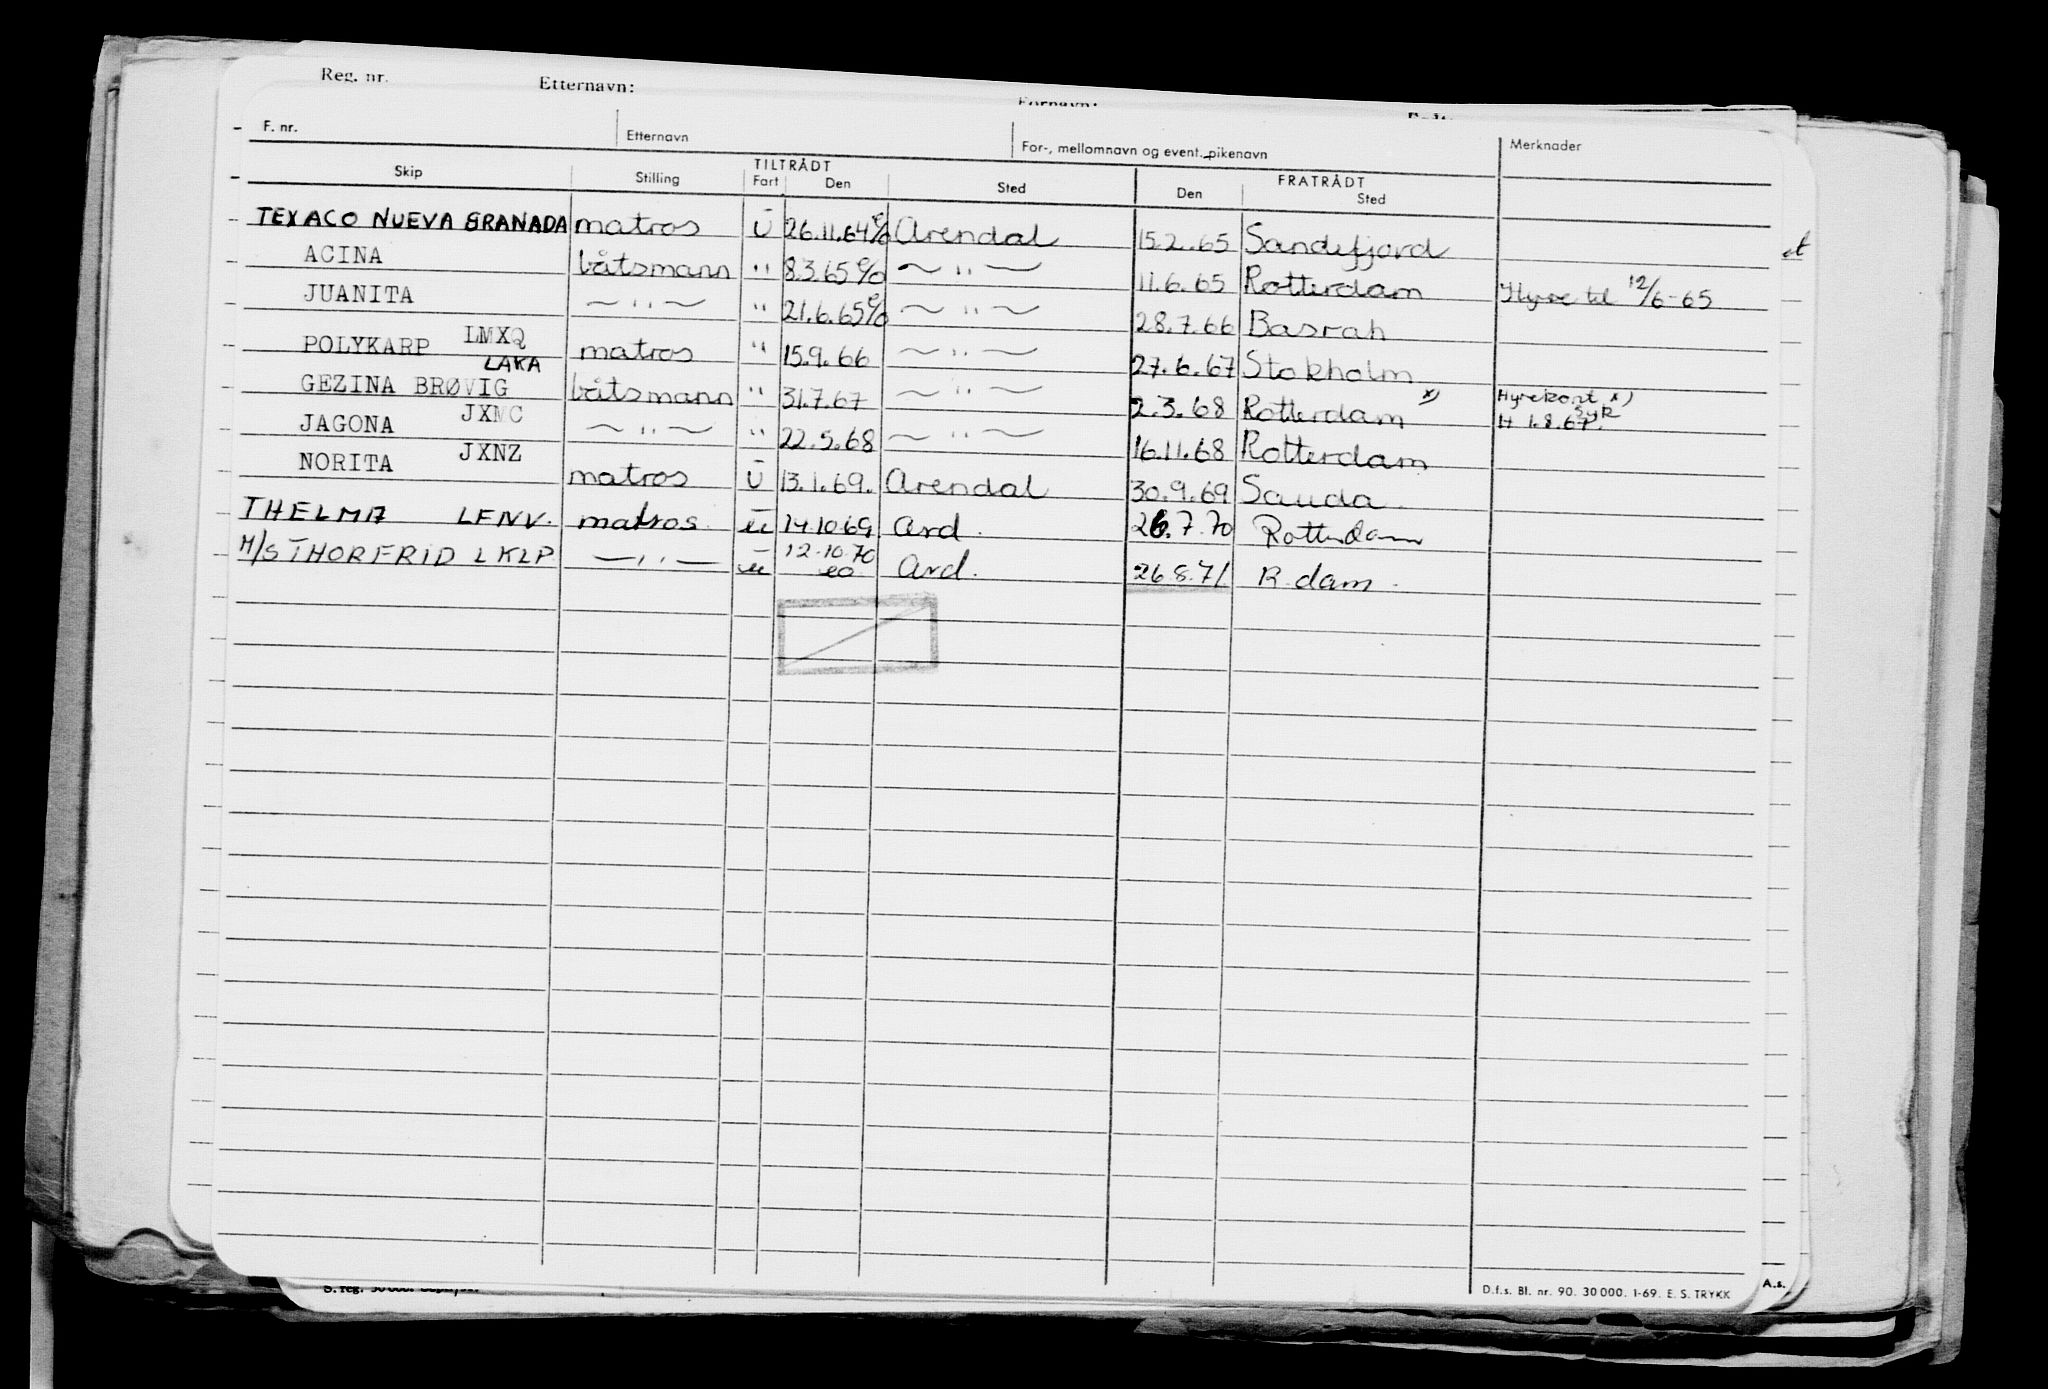 Reg. nr. Etternavn: Fornavn:
F. nr. Etternavn For-, mellomnavn og event. pikenavn Merknader
TILTRÅDT FRATRÅDT
Skip Stilling Fart Den Sted Den Sted
TEXACO NUEVA GRANADA matros U 26.11.64 % Arendal 15.2.65 Sandefjord
ACINA båtsmann " 8.3.65 % ~ " ~ 11.6.65 Rotterdam Hyre til 12/6-65
JUANITA ~ " ~ " 21.6.65 % ~ " ~ 28.7.66 Basrah
POLYKARP LMXQ matros " 15.9.66 ~ " ~ 27.6.67 Stokholm
GEZINA BRØVIG LAKA båtsmann " 31.7.67 ~ " ~ 2.3.68 Rotterdam x) Hyrekont x)
JAGONA JXMC ~ " ~ " 22.5.68 ~ " ~ 16.11.68 Rotterdam H 1.8.67. Syk
NORITA JXNZ matros U 13.1.69. Arendal 30.9.69 Sauda.
THELMA LFNV. matros. u 14.10.69 Ard. 26.7.70 Rotterdam
M/S THORFRID LKLP — " — u 12.10.70 eo Ard. 26.8.71 R.dam.
D.f.s. Bl. nr. 90. 30 000. 1-69. E. S. TRYKK A.s.